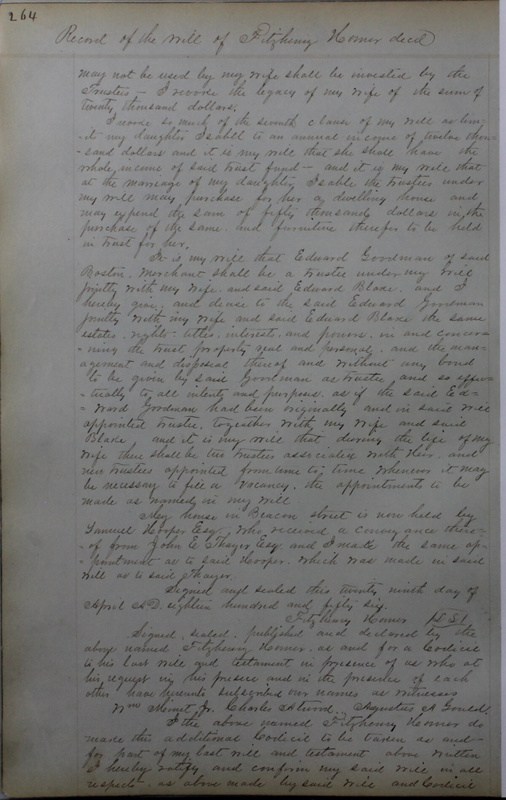 264
Record of the will of Fitzhenry Homer decd
may not be used by my wife shall be invested by the
Trustees — I revoke the legacy of my wife of the sum of
twenty thousand dollars.
I revoke so much of the seventh clause of my will as lim-
-it my daughter Isabell to an annual income of twelve thou-
-sand dollars and it is my will that she shall have the
whole income of said trust fund — and it is my will that
at the marriage of my daughter Isable the trustees under
my will may purchase for her a dwelling house and
may expend the sum of fifty thousand dollars in the
purchase of the same and furniture therefor to be held
in trust for her.
It is my will that Edward Goodman of said
Boston, Merchant shall be a trustee under my will
jointly with my wife and said Edward Blake, and I
hereby give and devise to the said Edward Goodman
jointly with my wife and said Edward Blake the same
estates, rights, titles, interests, and powers, in and concer-
-ning the trust property real and personal, and the man-
agement and disposal thereof and without any bond
to be given by said Goodman as trustee, and so effec-
-tually to all intents and purposes as if the said Ed-
-ward Goodman had been originally and in said will
appointed trustee, together with my wife and said
Blake, and it is my will that during the life of my
wife there shall be two trustees associated with her, and
new trustees appointed from time to time whenever it may
be necessary to fill a vacancy, the appointments to be
made as named in my will
My house in Beacon street is now held by
Samuel Hooper Esq. who received a conveyance there-
-of from John E Thayer Esq and I make the same ap-
-pointment as to said Hooper, which was made in said
will as to said Thayer.
Signed and sealed this twenty ninth day of
April A.D. eighteen hundred and fifty six.
Fitzhenry Homer
Signed, sealed, published and declared by the
above named Fitzhenry Homer, as and for a Codicil
to his last will and testament in presence of us who at
his request in his presence and in the presence of each
other have hereunto subscribed our names as witnesses
Wm Jr. Charles Augustus A Gould.
I the above named Fitzhenry Homer do
make this additional Codicil to be taken as and
for part of my last will and testament above written
I hereby ratify and confirm my said will in all
respects, as above made by said will and Codicil